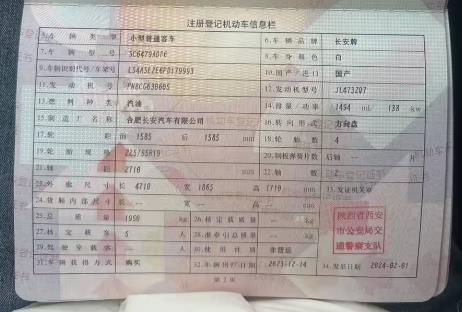 注册登记机动车信息栏
5.车辆类型 小型普通客车 6.车辆品牌 长安牌
7.车辆型号 8.车身颜色 白
9.车辆识别代号/车架号 10.国产/进口 国产
11.发动机号 12.发动机型号 JL473ZQ7
13.燃料种类 汽油 14.排量/功率 1494 ml/ 138 kw
15.制造厂名称 合肥长安汽车有限公司 16.转向形式 方向盘
17.轮距 前 1585 后 1585 mm 18.轮胎数 4
19.轮胎规格 225/55R19 20.钢板弹簧片数 后轴 --片
21.轴距 2710 mm 22.轴数 2
23.外廓尺寸 长 4710 宽 1865 高 1719 mm 33.发证机关章
24.货厢内部尺寸 长 宽 高 mm
25.总质量 1950 kg 26.核定载质量 kg
27.核定载客 5 人 28.准牵引总质量 kg
29.驾驶室载客 人 30.使用性质 非营运
31.车辆获得方式 购买 32.车辆出厂日期 2023-12-14 34.发证日期 2024-02-01
陕西省西安
市公安局交
通警察支队
第2页